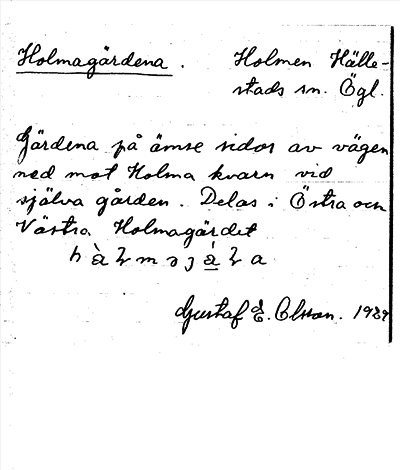 Holmagärdena. Holmen Hälle-
stads sn. Ögl.
Gärdena på ömse sidor av vägen
ned mot Holma kvarn vid
själva gården. Delas i Östra och
Västra Holmagärdet
Gustaf E. Olsson. 1929